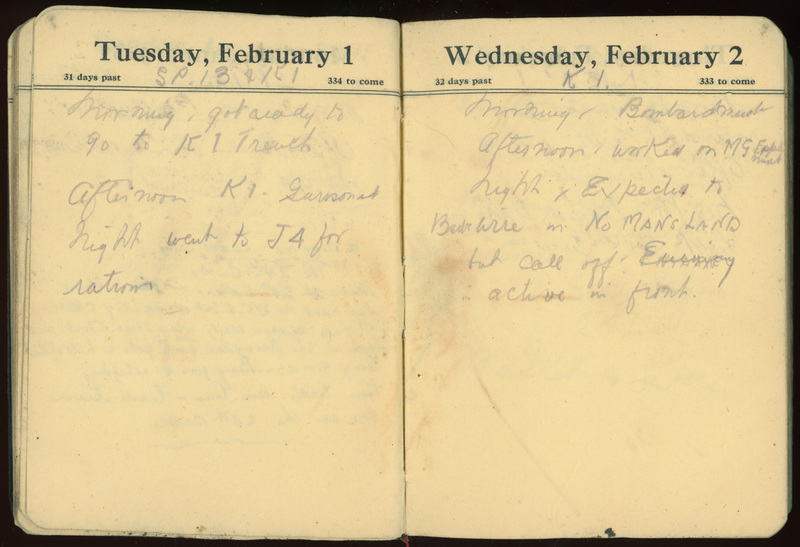 Tuesday, February 1
31 days past SP.13 & K1 334 to come
Morning, got ready to
go to K1 Trench
Afternoon K1. Garrisoned
Night went to J4 for
rations
Wednesday, February 2
32 days past K 1. 333 to come
Morning, Bombardment
Afternoon, worked on MG
Night, Expected to
wire in NO MANS LAND
but call off
active in front.